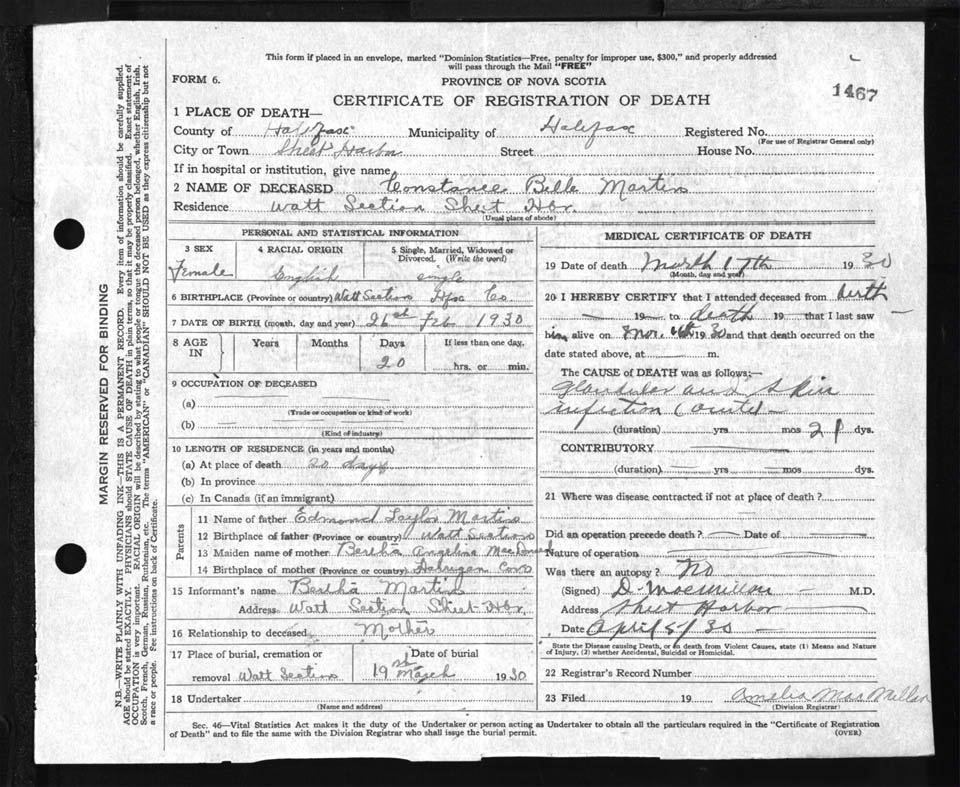 This form if placed in an envelope, marked "Dominion Statistics—Free, penalty for improper use, $300," and properly addressed
will pass through the Mail "FREE"
FORM 6.
PROVINCE OF NOVA SCOTIA
1467
CERTIFICATE OF REGISTRATION OF DEATH
1 PLACE OF DEATH—
County of Halifax Municipality of Halifax Registered No.
(For use of Registrar General only)
City or Town Sheet Harbor Street House No.
If in hospital or institution, give name
2 NAME OF DECEASED Constance Belle Martin
Residence Watt Section Sheet Hbr.
(Usual place of abode)
PERSONAL AND STATISTICAL INFORMATION
3 SEX 4 RACIAL ORIGIN 5 Single, Married, Widowed or Divorced. (Write the word)
Female English single
6 BIRTHPLACE (Province or country) Watt Section Hfx Co
7 DATE OF BIRTH (month, day and year) 26th Feb 1930
8 AGE IN Years Months Days If less than one day,
20 hrs. or min.
9 OCCUPATION OF DECEASED
(a)
(Trade or occupation or kind of work)
(b)
(Kind of industry)
10 LENGTH OF RESIDENCE (in years and months)
(a) At place of death 20 days
(b) In province
(c) In Canada (if an immigrant)
Parents
11 Name of father Edmond Taylor Martin
12 Birthplace of father (Province or country) Watt Section
13 Maiden name of mother Bertha Angelina MacDonald
14 Birthplace of mother (Province or country) Harrigan Cove
15 Informant's name Bertha Martin
Address Watt Section Sheet Hbr.
16 Relationship to deceased Mother
17 Place of burial, cremation or Date of burial
removal Watt Section 19 March 1930
18 Undertaker
(Name and address)
MEDICAL CERTIFICATE OF DEATH
19 Date of death March 17th 1930
(Month, day and year)
20 I HEREBY CERTIFY that I attended deceased from birth
19 to death 19 that I last saw
him alive on 1930 and that death occurred on the
date stated above, at m.
The CAUSE of DEATH was as follows:—
Glandular and skin
infection (acute)
(duration) yrs mos 21 dys.
CONTRIBUTORY
(duration) yrs mos dys.
21 Where was disease contracted if not at place of death?
Did an operation precede death? Date of
Nature of operation
Was there an autopsy? No
(Signed) D. Macmillan M.D.
Address Sheet Harbor
Date April 5/30
State the Disease causing Death, or in death from Violent Causes, state (1) Means and Nature
of Injury, (2) whether Accidental, Suicidal or Homicidal.
22 Registrar's Record Number
23 Filed 19 Amelia MacMillan
(Division Registrar)
Sec. 46—Vital Statistics Act makes it the duty of the Undertaker or person acting as Undertaker to obtain all the particulars required in the "Certificate of Registration
of Death" and to file the same with the Division Registrar who shall issue the burial permit.
(OVER)
MARGIN RESERVED FOR BINDING
N.B.—WRITE PLAINLY WITH UNFADING INK—THIS IS A PERMANENT RECORD. Every item of information should be carefully supplied.
AGE should be stated EXACTLY. PHYSICIANS should STATE CAUSE OF DEATH in plain terms, so that it may be properly classified. Exact statement of
OCCUPATION is very important. RACIAL ORIGIN will be described by stating to what people or tongue the deceased person belonged, whether English, Irish,
Scotch, French, German, Russian, Ruthenian, etc. The terms "AMERICAN" or "CANADIAN" SHOULD NOT BE USED as they express citizenship but not
a race or people. See instructions on back of Certificate.